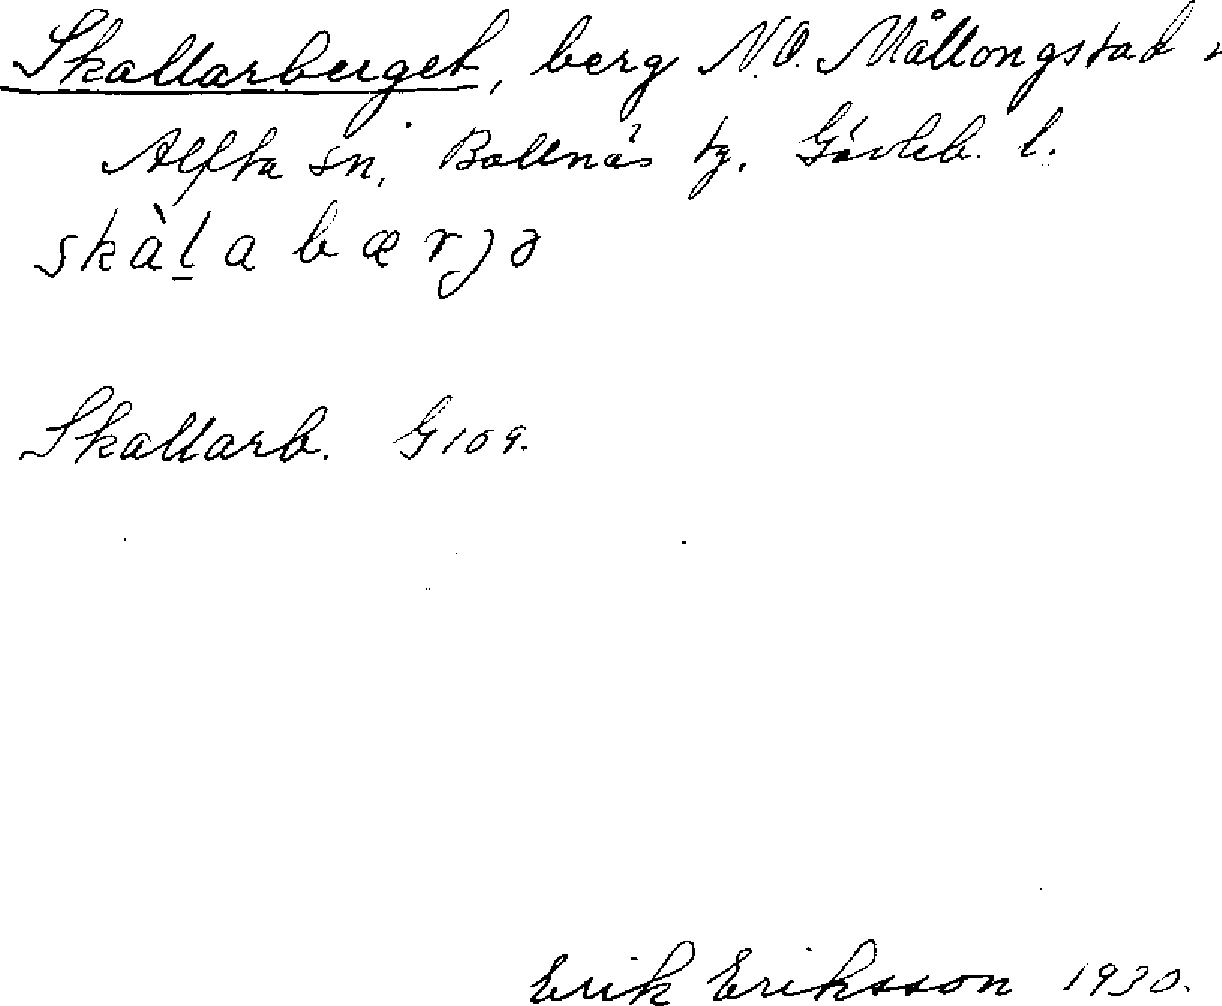 Skallarberget, berg N.O. Mållongstad i
Alfta sn, Bollnäs tg. Gävleb. l.
skàḻabærjə
Skallarb. G109.
Erik Eriksson 1930.